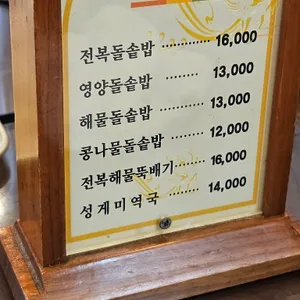 전복돌솥밥 ············· 16,000
영양돌솥밥 ········ 13,000
해물돌솥밥 ········· 13,000
콩나물돌솥밥 ········ 12,000
전복해물뚝배기 ······· 16,000
성게미역국 ········ 14,000